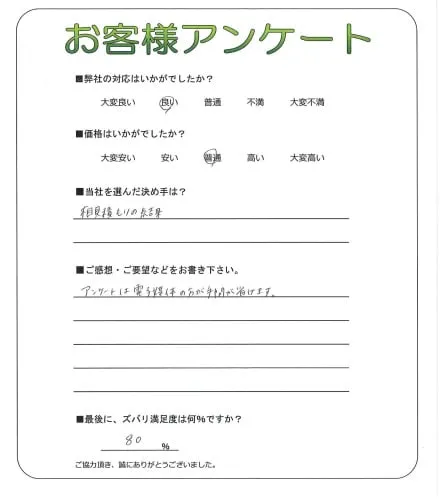 お客様アンケート
■弊社の対応はいかがでしたか？
大変良い 良い 普通 不満 大変不満
■価格はいかがでしたか？
大変安い 安い 普通 高い 大変高い
■当社を選んだ決め手は？
相見積もりの結果
■ご感想・ご要望などをお書き下さい。
アンケートは電子媒体の方が手間が省けます。
■最後に、ズバリ満足度は何％ですか？
80 ％
ご協力頂き、誠にありがとうございました。